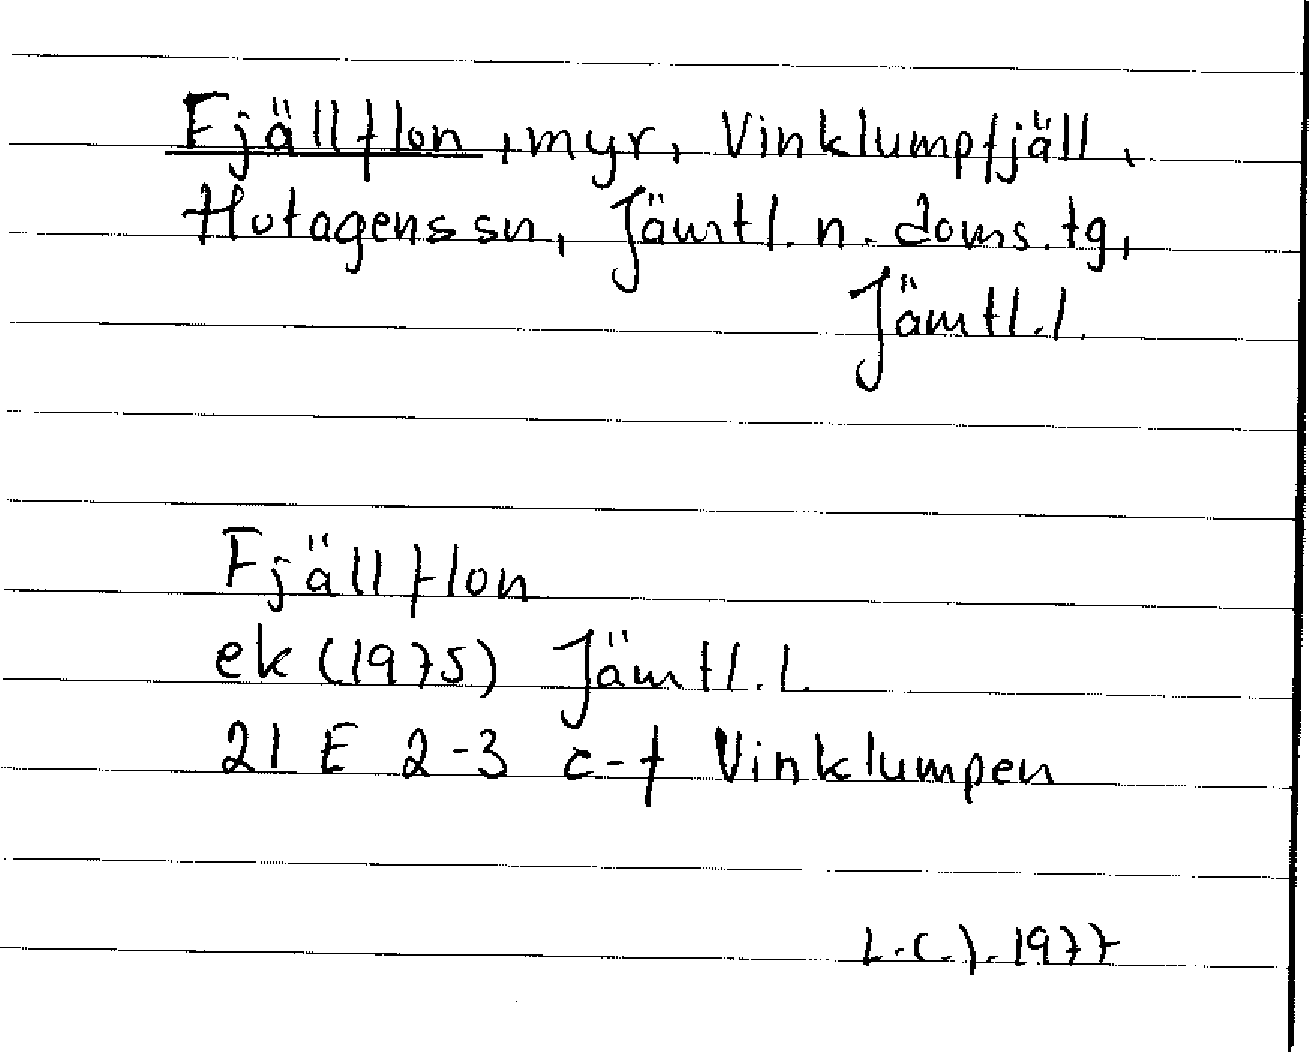 Fjällflon, myr, Vinklumpfjäll,
Hotagens sn, Jämtl. n. doms. tg,
Jämtl. l.
Fjällflon
ek (1975) Jämtl. l.
21 E 2-3 c-f Vinklumpen
L.C.J. 1977